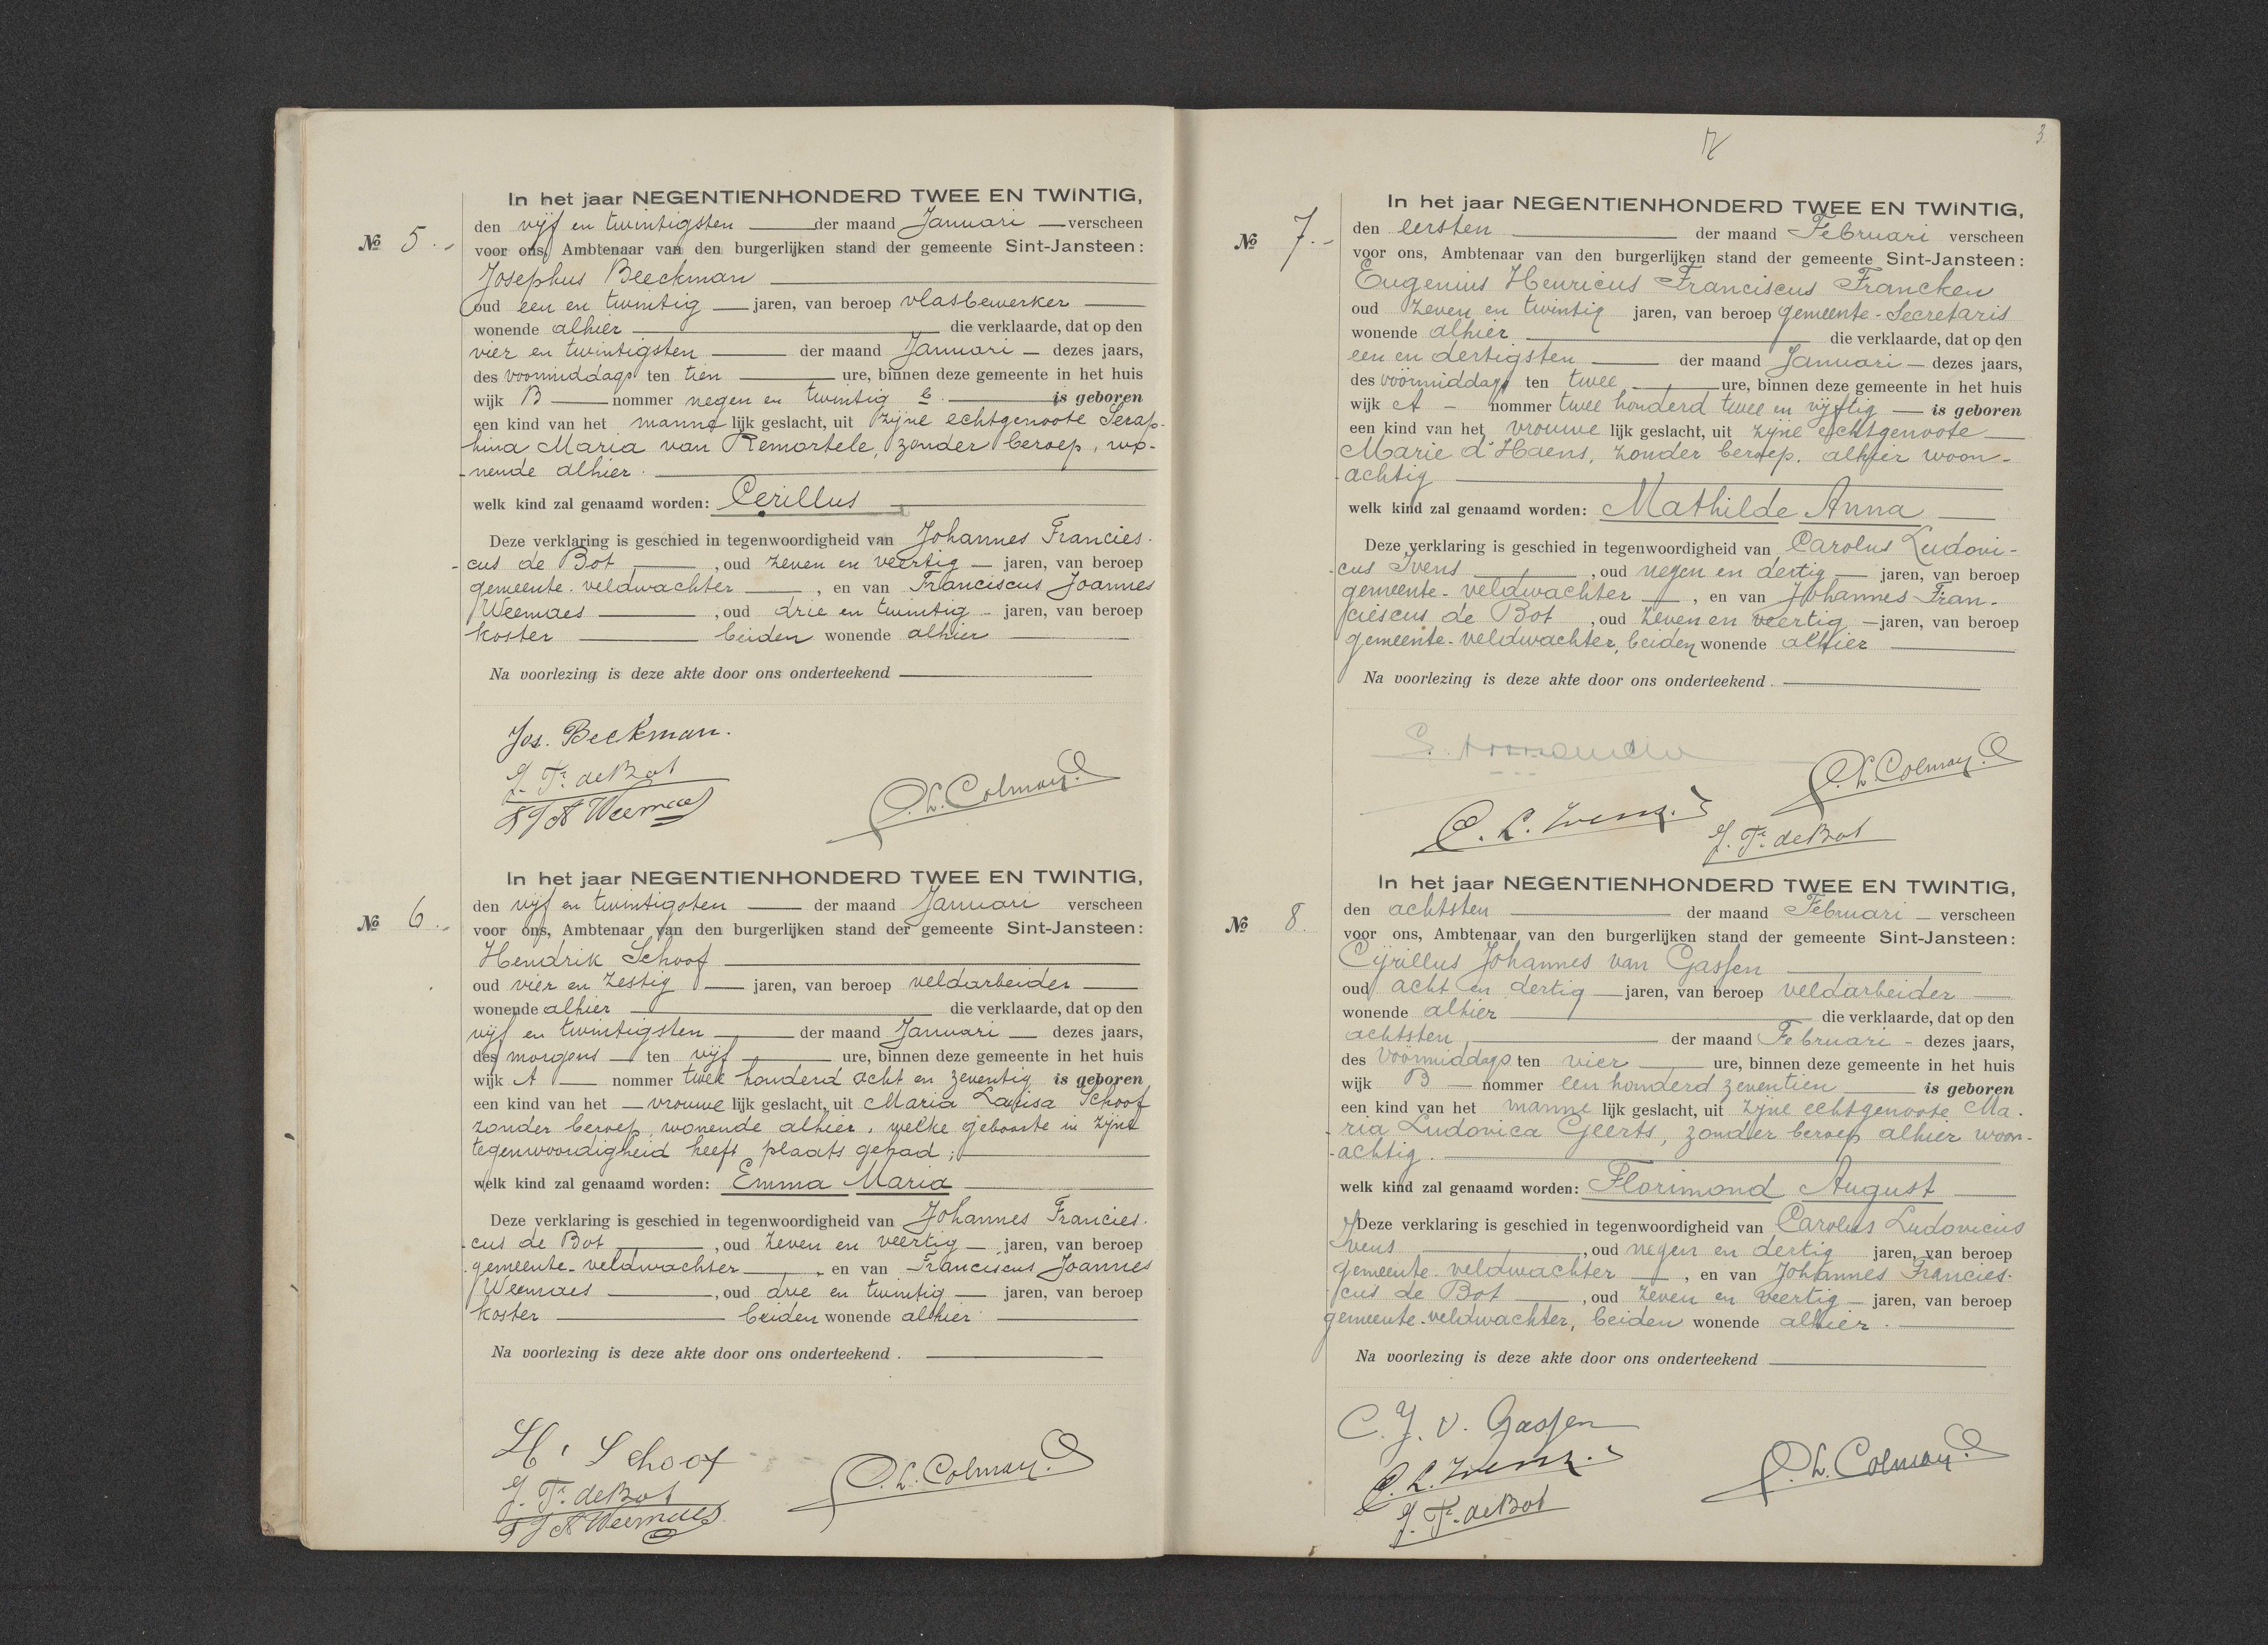 In het jaar NEGENTIENHONDERD TWEE EN TWINTIG,
den vijf en twintigsten der maand Januari verscheen
No 5.
voor ons, Ambtenaar van den burgerlijken stand der gemeente Sint-Jansteen:
Josephus Beeckman
oud een en twintig jaren, van beroep vlasbewerker
wonende alhier die verklaarde, dat op den
vier en twintigsten der maand Januari dezes jaars,
des voormiddags ten tien ure, binnen deze gemeente in het huis
wijk B nommer negen en twintig is geboren
een kind van het manne lijk geslacht, uit zijne echtgenoote Serap-
hina Maria van Remortele, zonder beroep, wo-
nende alhier.
welk kind zal genaamd worden: Cerillus
Deze verklaring is geschied in tegenwoordigheid van Johannes Francies-
cus de Bot, oud zeven en veertig jaren, van beroep
gemeente-veldwachter, en van Franciscus Joannes
Weemaes, oud drie en twintig jaren, van beroep
koster beiden wonende alhier
Na voorlezing is deze akte door ons onderteekend
Jos. Beekman.
J. Fr. de Bot
F J A Weemaes
P. L. Colman
In het jaar NEGENTIENHONDERD TWEE EN TWINTIG,
den vijf en twintigsten der maand Januari verscheen
No 6.
voor ons, Ambtenaar van den burgerlijken stand der gemeente Sint-Jansteen:
Hendrik Schoof
oud vier en zestig jaren, van beroep veldarbeider
wonende alhier die verklaarde, dat op den
vijf en twintigsten der maand Januari dezes jaars,
des morgens ten vijf ure, binnen deze gemeente in het huis
wijk A nommer twee honderd acht en zeventig is geboren
een kind van het vrouwe lijk geslacht, uit Maria Lavisa Schoof
zonder beroep, wonende alhier, welke geboorte in zijne
tegenwoordigheid heeft plaats gehad;
welk kind zal genaamd worden: Emma Maria
Deze verklaring is geschied in tegenwoordigheid van Johannes Francies-
cus de Bot, oud zeven en veertig jaren, van beroep
gemeente-veldwachter, en van Franciscus Joannes
Weemaes, oud drie en twintig jaren, van beroep
koster beiden wonende alhier
Na voorlezing is deze akte door ons onderteekend.
H. Schoof
J. Fr. de Bot
F J A Weemaes
P. L. Colman
3
In het jaar NEGENTIENHONDERD TWEE EN TWINTIG,
den eersten der maand Februari verscheen
No 7.
voor ons, Ambtenaar van den burgerlijken stand der gemeente Sint-Jansteen:
Eugenius Henricus Franciscus Francken
oud zeven en twintig jaren, van beroep gemeente-Secretaris
wonende alhier die verklaarde, dat op den
een en dertigsten der maand Januari dezes jaars,
des voormiddags ten twee ure, binnen deze gemeente in het huis
wijk A nommer twee honderd twee en vijftig is geboren
een kind van het vrouwe lijk geslacht, uit zijne echtgenoote
Marie d'Haens, zonder beroep, alhier woon-
achtig
welk kind zal genaamd worden: Mathilde Anna
Deze verklaring is geschied in tegenwoordigheid van Carolus Ludovi-
cus Ivens, oud negen en dertig jaren, van beroep
gemeente-veldwachter, en van Johannes Fran-
ciescus de Bot, oud zeven en veertig jaren, van beroep
gemeente-veldwachter, beiden wonende alhier
Na voorlezing is deze akte door ons onderteekend.
P. L. Colman
C. L. Ivens.
J. Fr. de Bot
In het jaar NEGENTIENHONDERD TWEE EN TWINTIG,
den achtsten der maand Februari verscheen
No 8.
voor ons, Ambtenaar van den burgerlijken stand der gemeente Sint-Jansteen:
Cyrillus Johannes van Gassen
oud acht en dertig jaren, van beroep veldarbeider
wonende alhier die verklaarde, dat op den
achtsten der maand Februari dezes jaars,
des voormiddags ten vier ure, binnen deze gemeente in het huis
wijk B nommer een honderd zeventien is geboren
een kind van het manne lijk geslacht, uit zijne echtgenoote Ma-
ria Ludovica Geerts, zonder beroep alhier woon-
achtig.
welk kind zal genaamd worden: Florimond August
Deze verklaring is geschied in tegenwoordigheid van Carolus Ludovicus
Ivens, oud negen en dertig jaren, van beroep
gemeente-veldwachter, en van Johannes Francies-
cus de Bot, oud zeven en veertig jaren, van beroep
gemeente-veldwachter, beiden wonende alhier.
Na voorlezing is deze akte door ons onderteekend
C. J. v. Gassen
C. L. Ivens.
J. Fr. de Bot
P. L. Colman